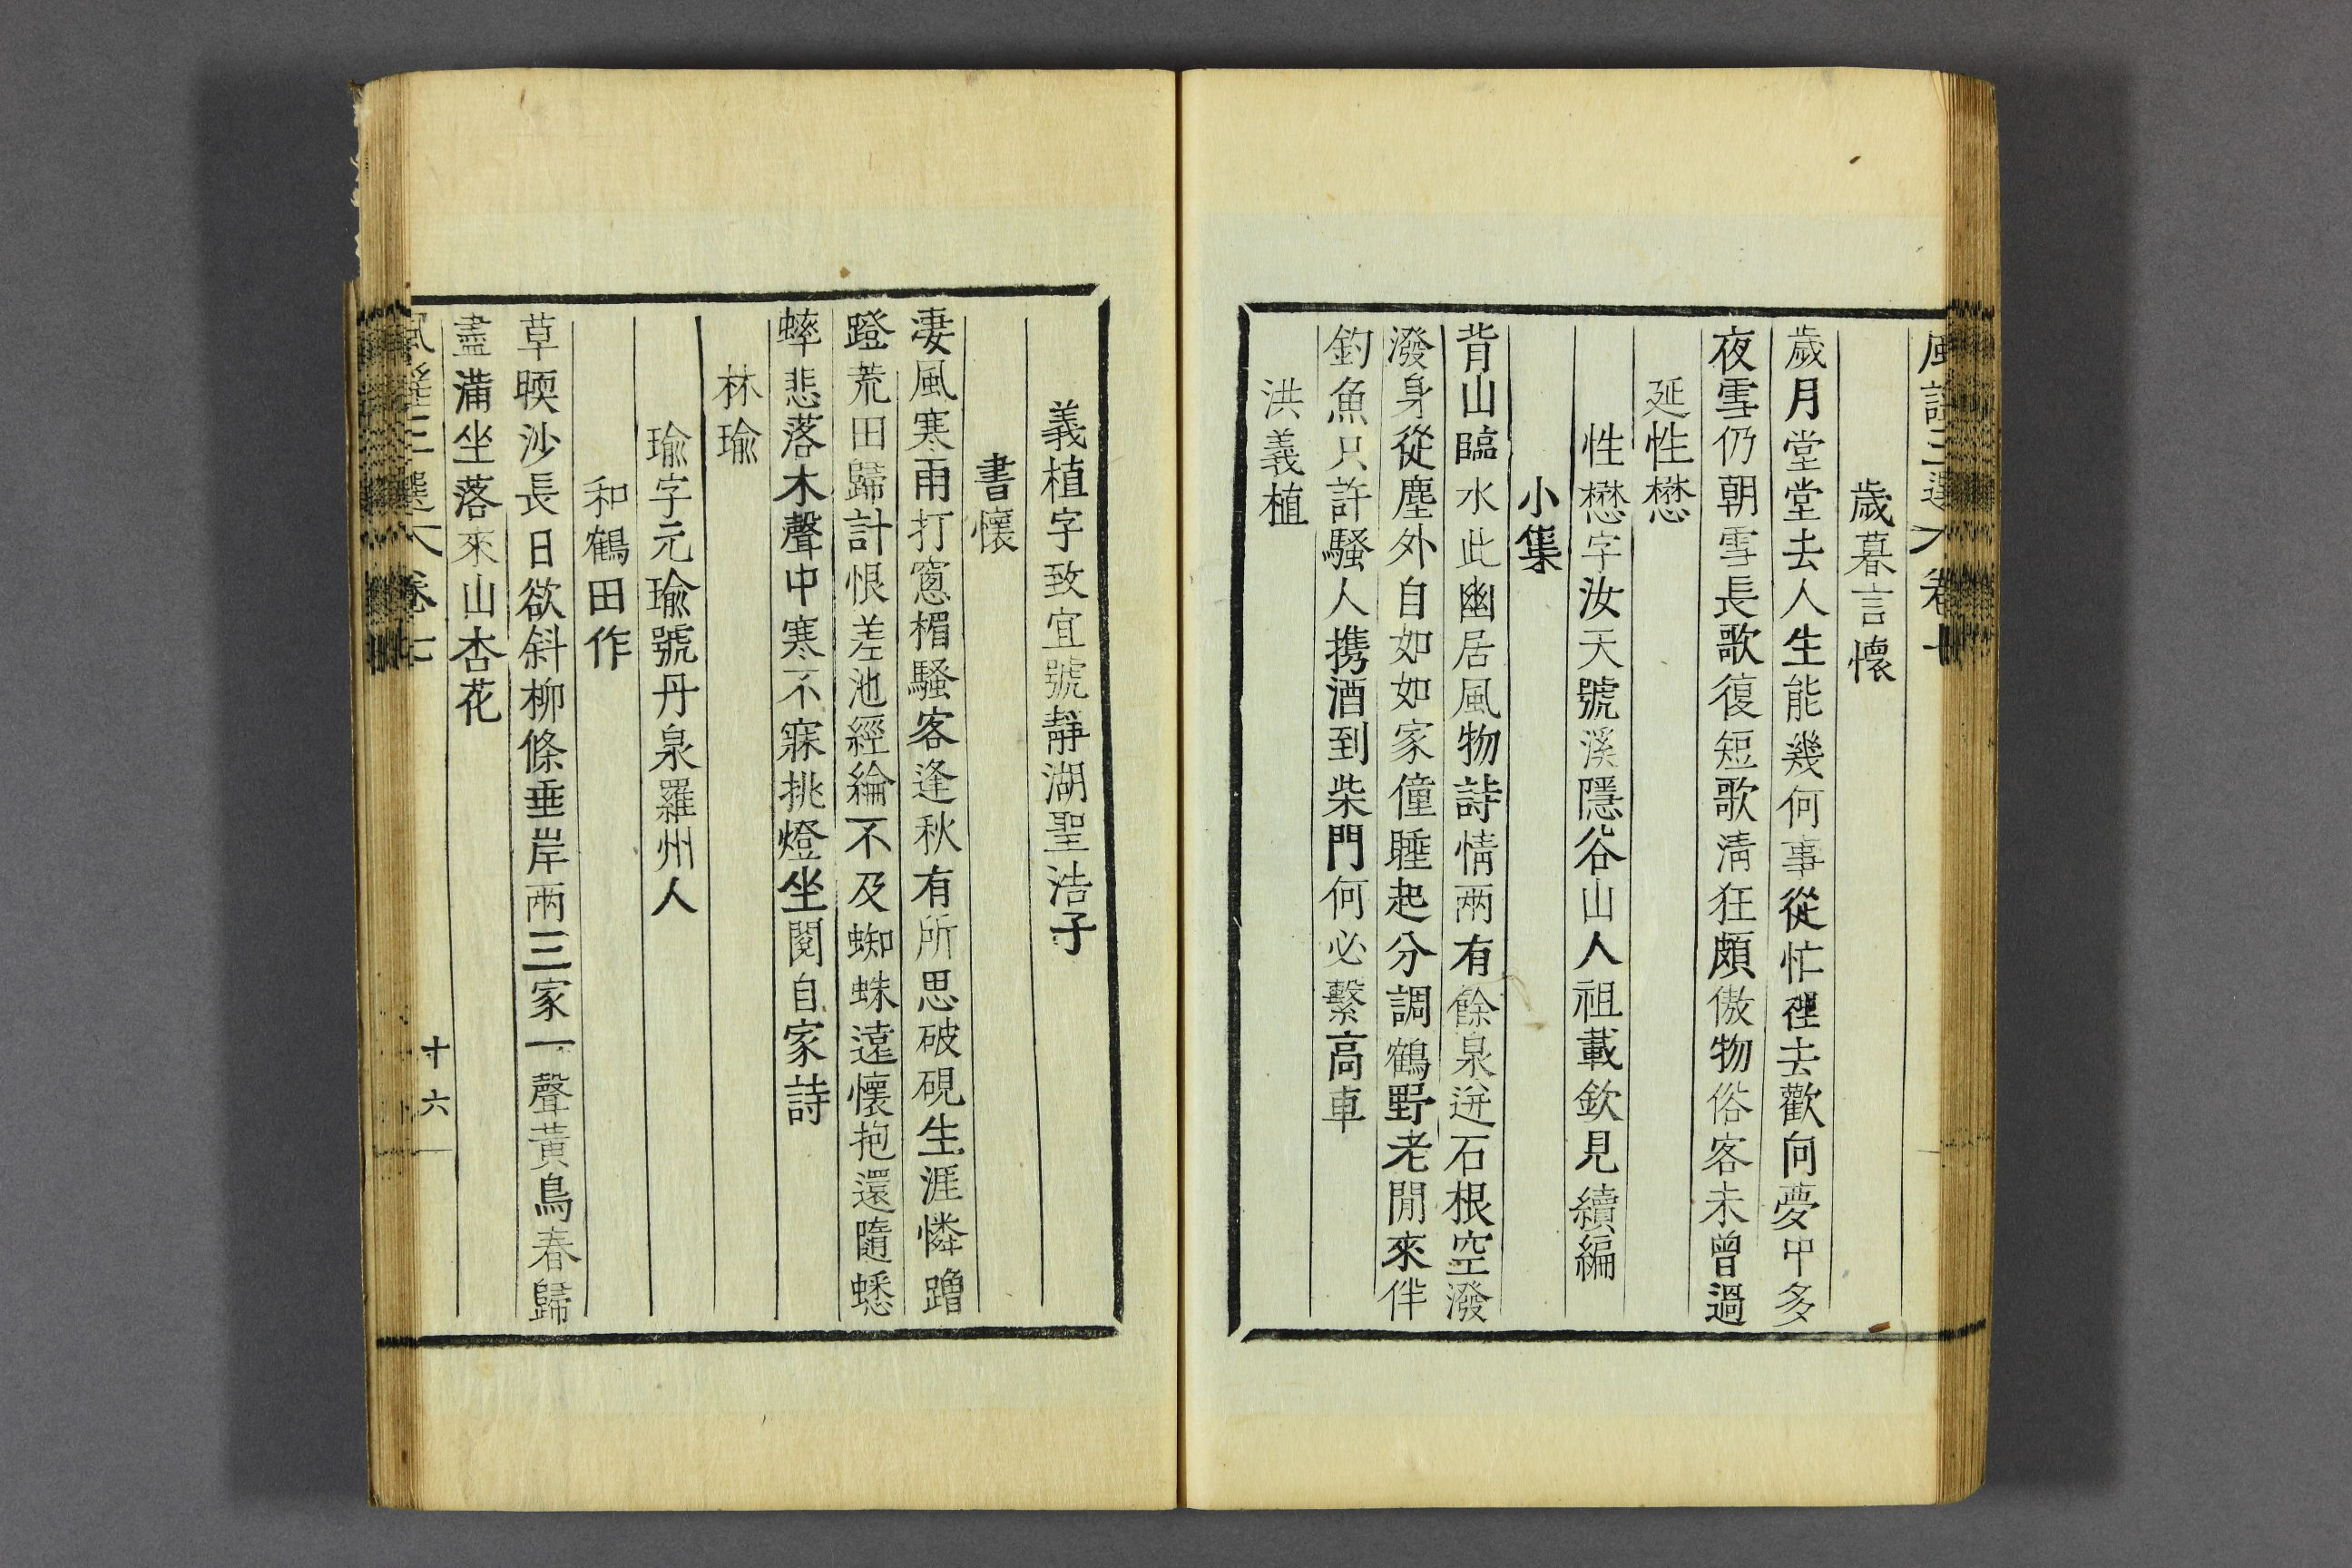 歲暮言懷
歲月堂堂去人生能幾何事從忙裡去歡向夢中多
夜雪仍朝雪長歌復短歌淸狂頗傲物俗客未曾過
延性懋
性懋字汝天號溪隱谷山人祖載欽見續編
小集
背山臨水此幽居風物詩情兩有餘泉迸石根空潑
潑身從塵外自如如家僮睡起分調鶴野老閒來伴
釣魚只許騷人携酒到柴門何必繫高車
洪義植
義植字致宜號靜湖聖浩子
書懷
凄風寒雨打窓楣騷客逢秋有所思破硯生涯憐蹭
蹬荒田歸計恨差池經綸不及蜘蛛遠懷抱還隨蟋
蟀悲落木聲中寒不寐挑燈坐閱自家詩
林瑜
瑜字元瑜號丹泉羅州人
和鶴田作
草暎沙長日欲斜柳條垂岸兩三家一聲黃鳥春歸
盡滿坐落來山杏花
風謠三選 卷七
十六